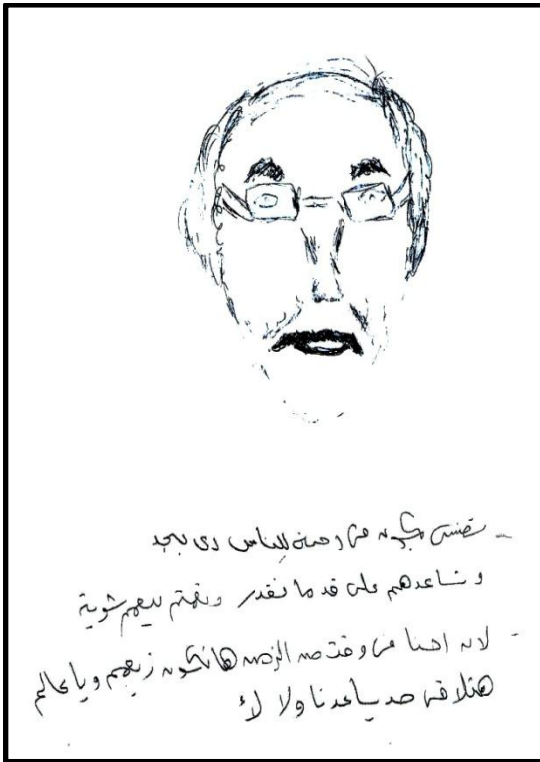 - نفسي يكون في رحمة للناس دى بجد
ونساعدهم على قد ما نقدر ونهتم بيهم شوية
- لان احنا في وقت من الزمن هانكون زيهم وياعالم
هنلاقى حد يساعدنا ولا لأ